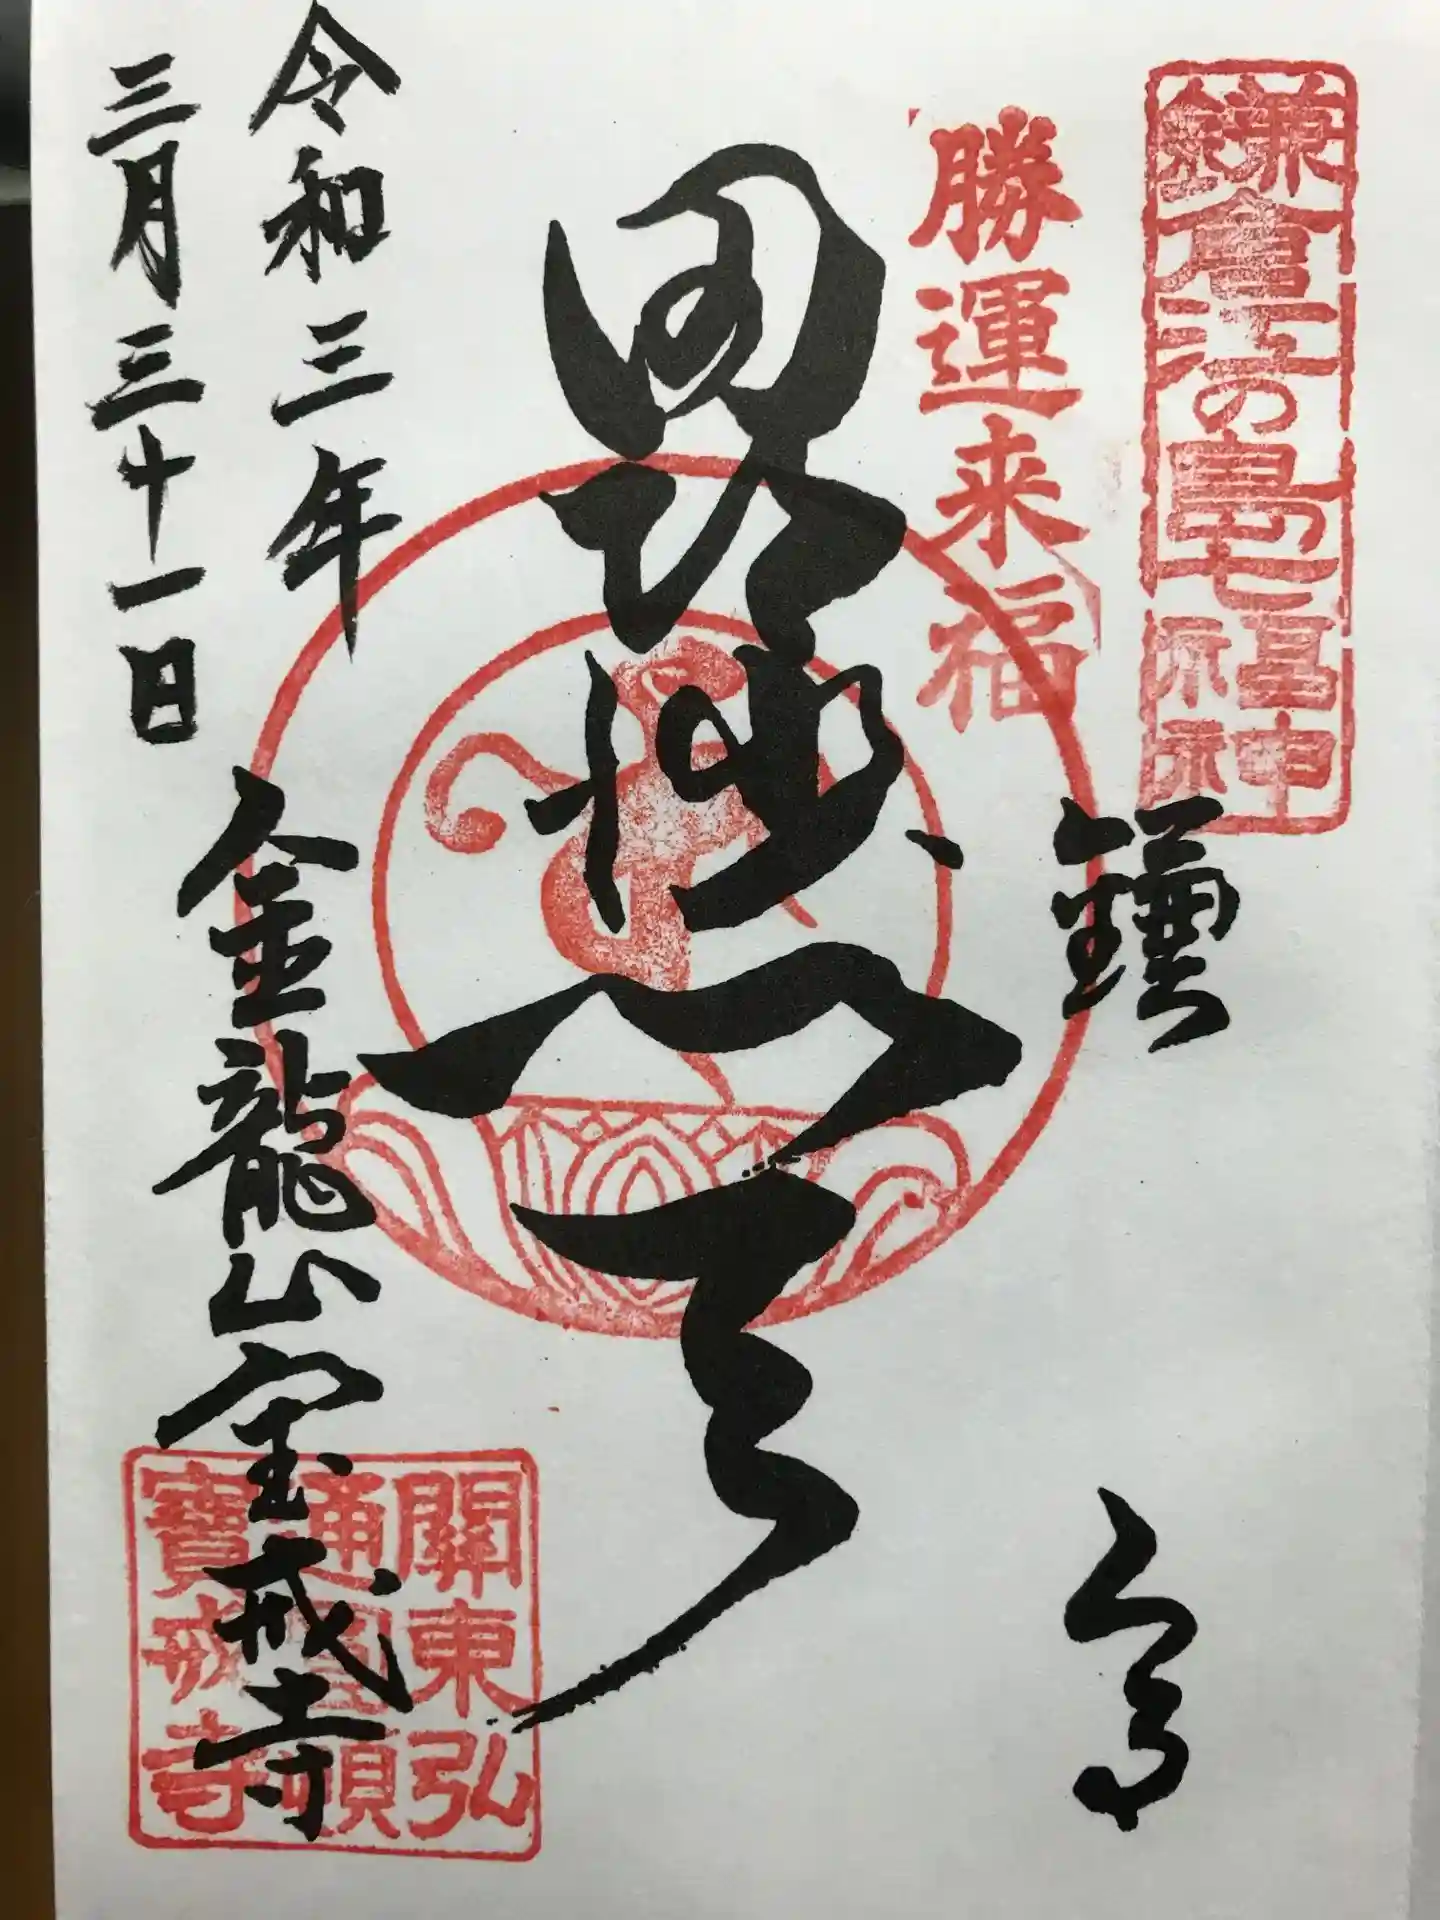 鎌倉江の島七福神
鎌倉
勝運来福
毘沙門天
令和三年
三月三十一日
金龍山宝戒寺
關東弘
通圓頓
寶戒寺